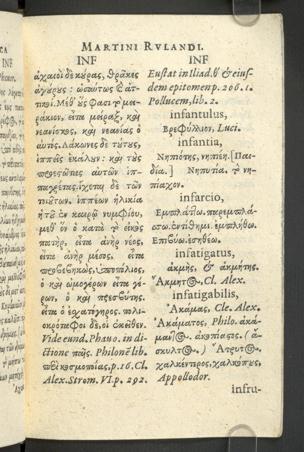 MARTINI RVLANDI.
INF
INF
ἀχαιοὶ δὲ κύρας, θρᾷκες
ἀγύρυς: ὡσαύτως
τικοί. Μεθ᾽ ὑς φασὶ
ράκιον, εἶτα μείραξ, καὶ
νεανίσκος, καὶ νεανίας ὁ
αὐτός. Λάκωνες δὲ τυτυς,
ἱππῦς ἐκάλυν: καὶ τυς
αὐτῶν
τῆς δὲ
ἵππων ἡλικία
καιρῷ νυμφίυ,
μεθ᾽ ὃν ὁ κατὰ
πατὴρ, εἶτα ἀνὴρ νέος,
εἶτα ἀνὴρ μέσος, εἶτα
προβεβηκὼς,
ὁ καὶ ὠμογέρων εἶτα γέ-
ρων, ὁ καὶ πρεσβύτης.
εἶτα ὁ ἐσχατόγηρος. πολι-
οκρόταφοι δὲ, οἱ ἐκεῖθεν.
Vide eund. Phauo. in di-
ctione παῖς. Philonē lib.
κοσμοποιίας, p. 16. Cl.
Alex. Strom. VI. p. 292.
Eustat in Iliad. & eius-
dem epitomen p. 206. 1.
Pollucem, lib. 2.
infantulus,
Βρεφύλλιον, Luci.
infantia,
Νηπιότης, νηπιέη. [Παι-
δία.] Νηπυτία. νη-
πίαχον.
infarcio,
Εμπλάττω. παρεμπλά-
στω. ἐντίθημι. ἐμπλήθω.
Επιβύω. ἐσηθέω.
infatigatus,
ἀκμὴς, & ἀκμήτης.
Ἄκμητος, Cl. Alex.
infatigabilis,
Ἀκάμας, Cle. Alex.
Ἀκάματος, Philo. ἀκά-
μαντος. ἀκοπίαστος. (ἀ-
σκυλτος.) Ἄτρυτος.
χαλκέντερος. χαλκόπυς,
Appollodor.
infru-